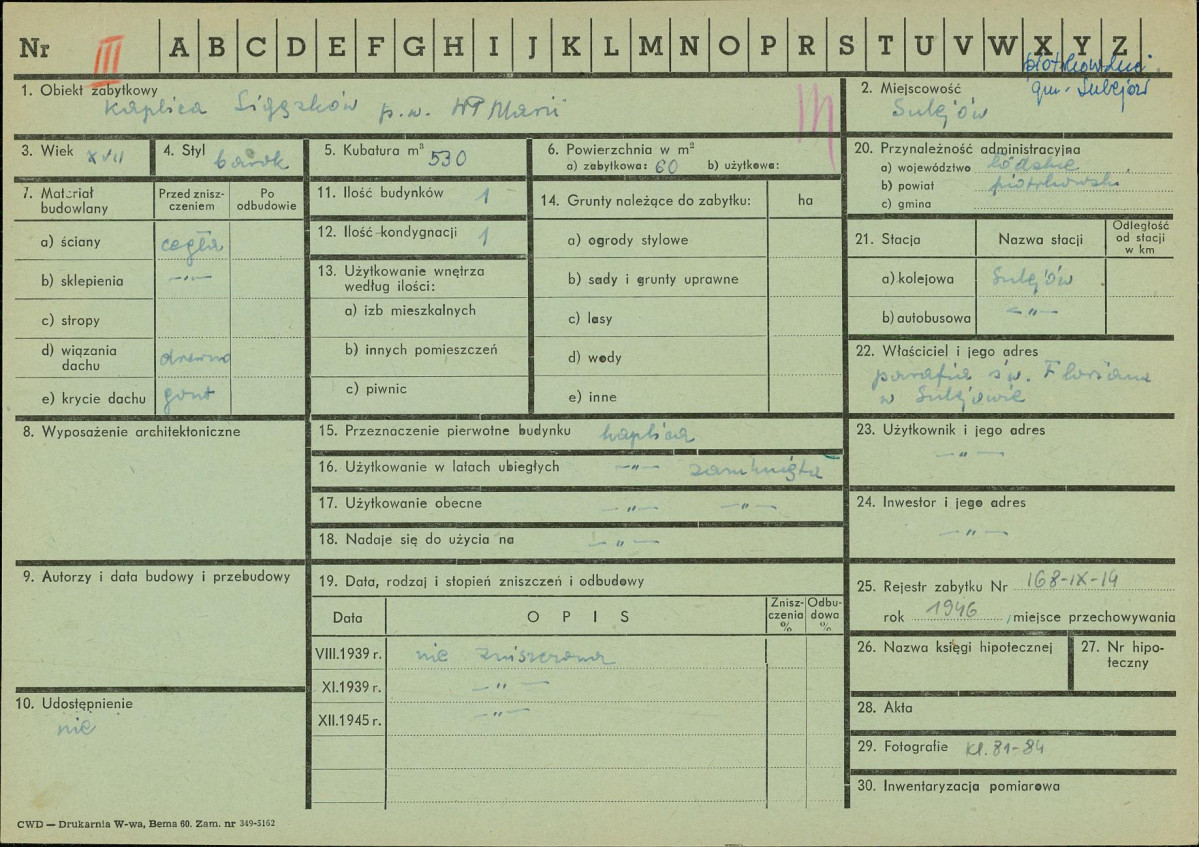 Nr III A B C D E F G H I J K L M N O P R S T U V W X Y Z
piotrkowski
gm. Sulejów
1. Obiekt zabytkowy
Kaplica p.w. NP Marii
2. Miejscowość
Sulejów
3. Wiek XVII
4. Styl barok
5. Kubatura m³ 530
6. Powierzchnia w m²
a) zabytkowa: 60 b) użytkowa:
20. Przynależność administracyjna
a) województwo łódzkie
b) powiat piotrkowski
c) gmina
7. Materiał budowlany
Przed zniszczeniem
Po odbudowie
a) ściany cegła
b) sklepienia -"-
c) stropy
d) wiązania dachu drewno
e) krycie dachu gont
11. Ilość budynków 1
12. Ilość kondygnacji 1
13. Użytkowanie wnętrza
według ilości:
a) izb mieszkalnych
b) innych pomieszczeń
c) piwnic
14. Grunty należące do zabytku: ha
a) ogrody stylowe
b) sady i grunty uprawne
c) lasy
d) wody
e) inne
21. Stacja
Nazwa stacji
Odległość od stacji w km
a) kolejowa Sulejów
b) autobusowa -"-
22. Właściciel i jego adres
parafia św. Floriana
w Sulejowie
8. Wyposażenie architektoniczne
15. Przeznaczenie pierwotne budynku kaplica
16. Użytkowanie w latach ubiegłych -"- zamknięta
17. Użytkowanie obecne -"- -"-
18. Nadaje się do użycia na -"-
23. Użytkownik i jego adres
-"-
24. Inwestor i jego adres
-"-
9. Autorzy i data budowy i przebudowy
19. Data, rodzaj i stopień zniszczeń i odbudowy
Data
OPIS
Zniszczenia %
Odbudowa %
VIII.1939 r. nie zniszczona
XI.1939 r. -"-
XII.1945 r. -"-
25. Rejestr zabytku Nr 168-IX-14
rok 1946, miejsce przechowywania
26. Nazwa księgi hipotecznej
27. Nr hipoteczny
10. Udostępnienie
nie
28. Akta
29. Fotografie kl. 81-84
30. Inwentaryzacja pomiarowa
CWD — Drukarnia W-wa, Bema 60. Zam. nr 349-5162